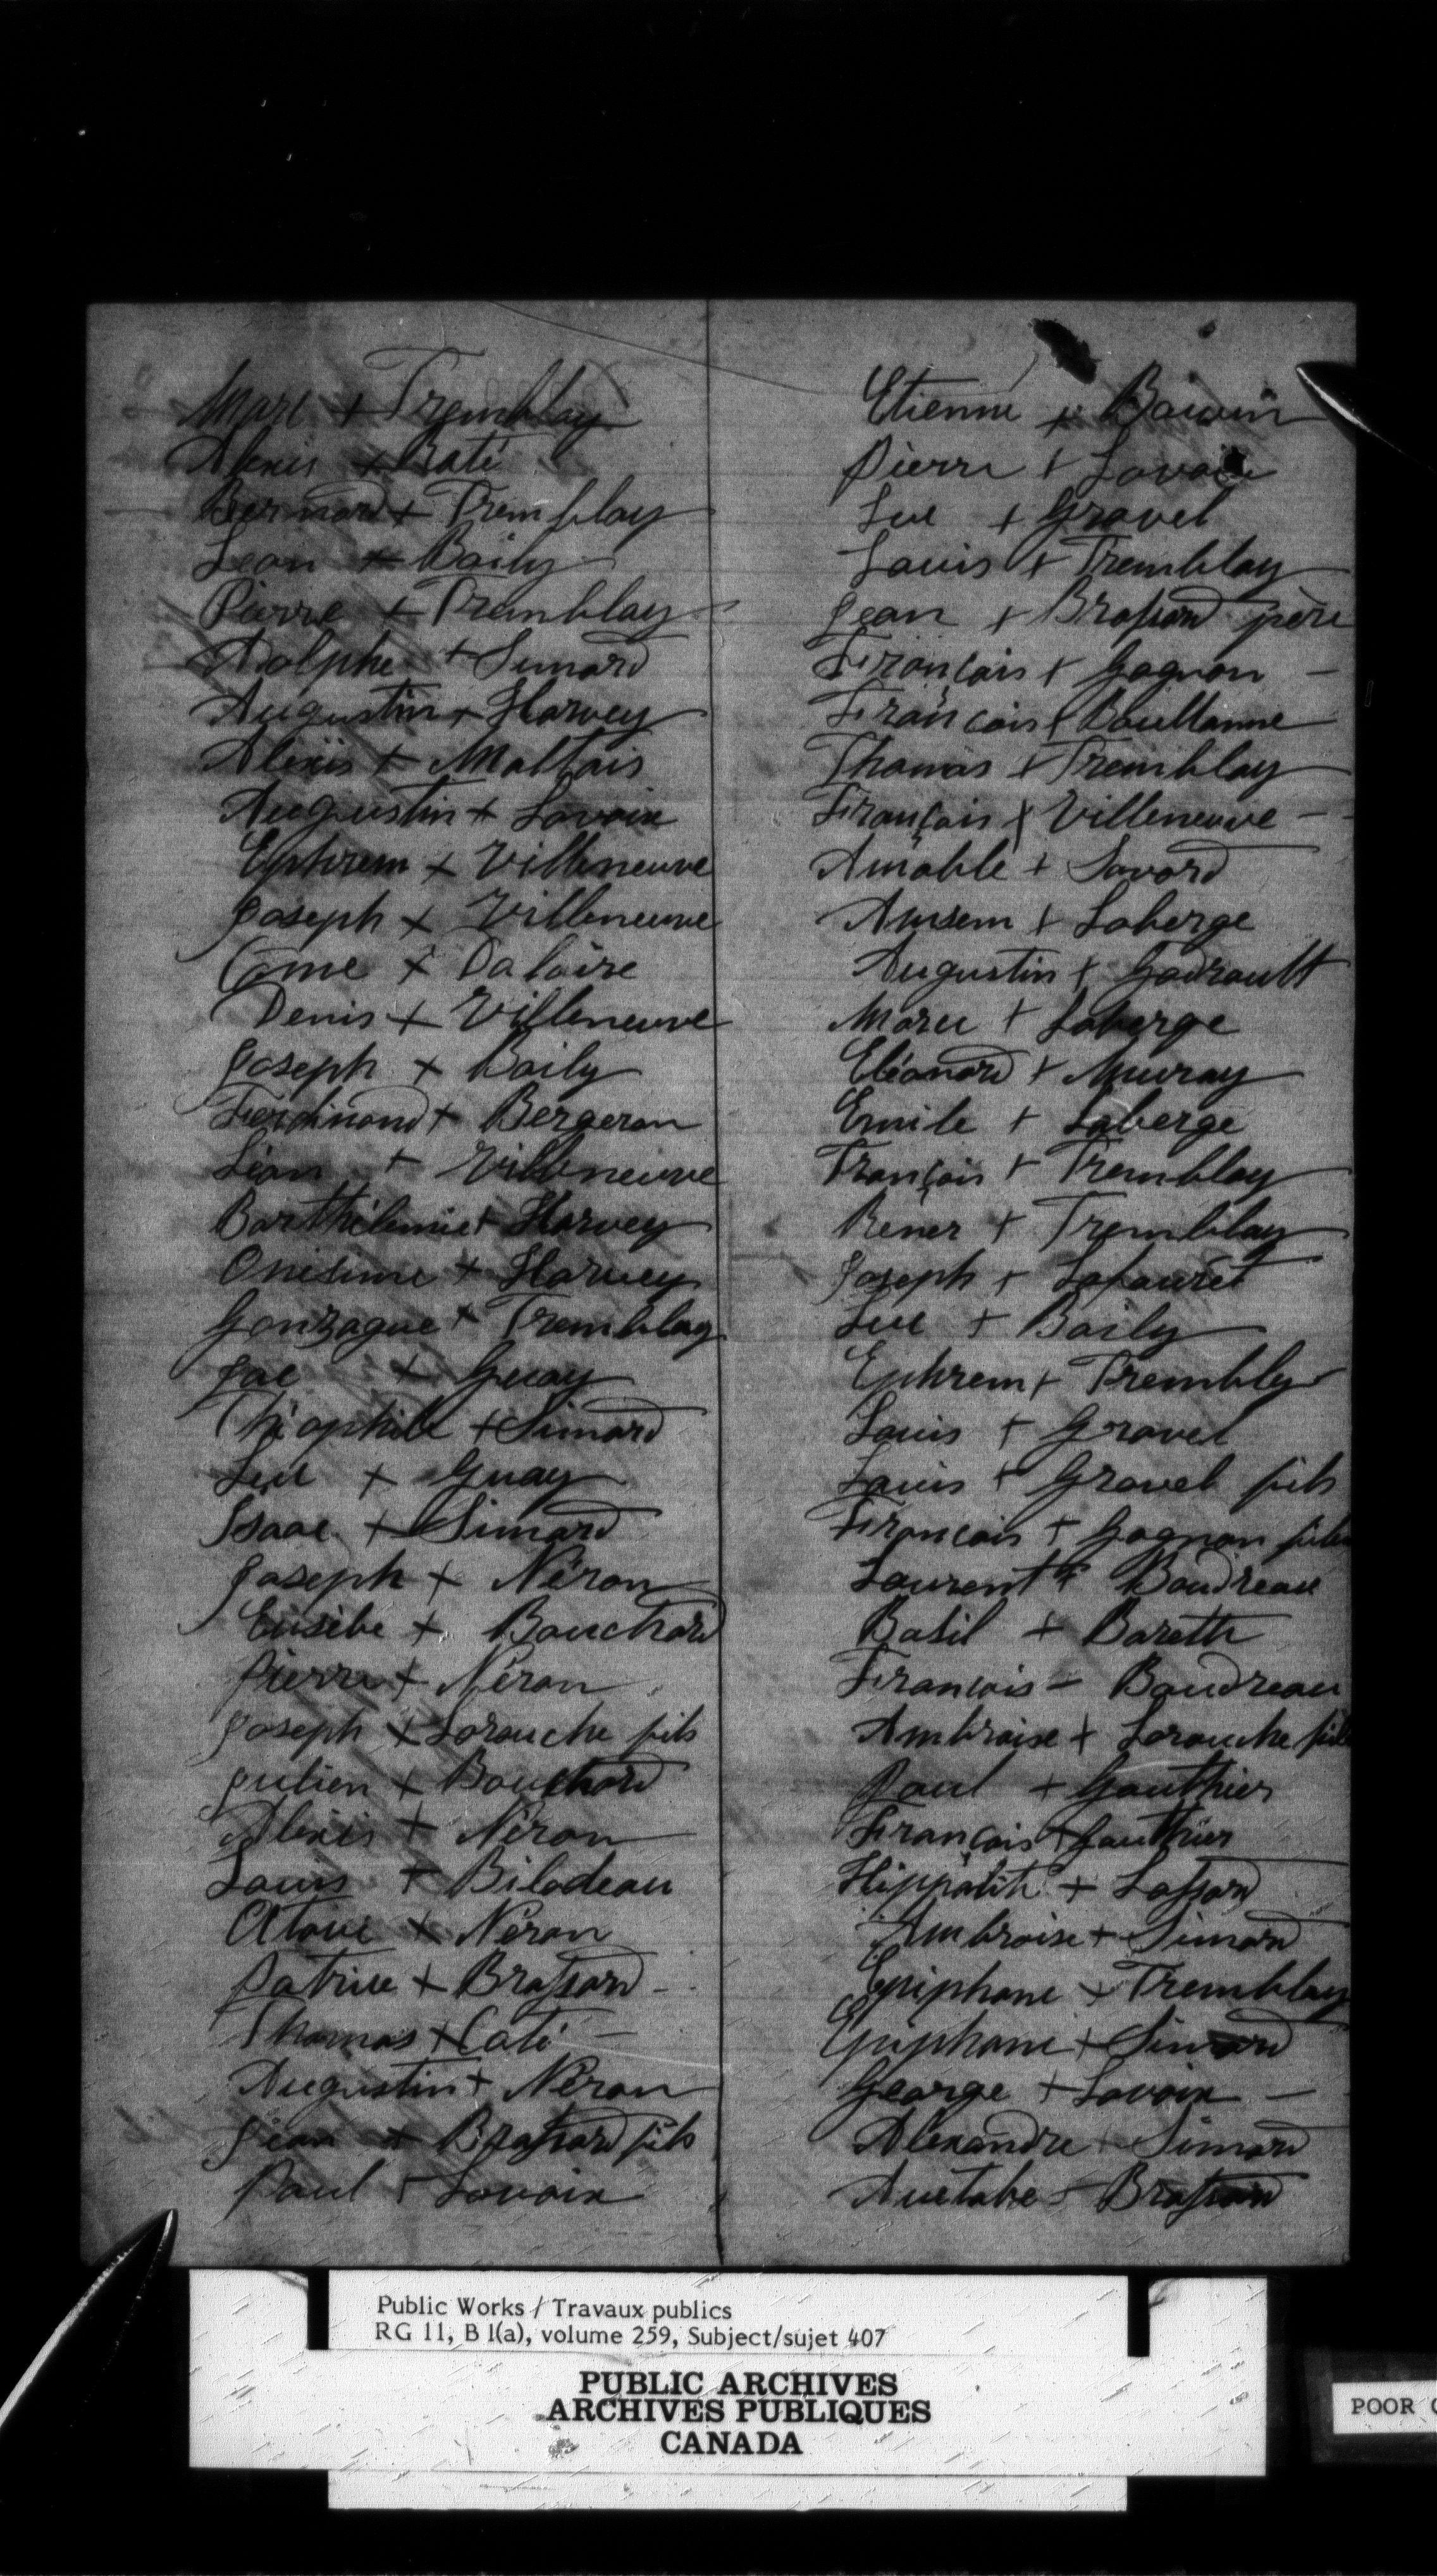 Marc + Tremblay
Alexis + Coté
Bernard + Tremblay
Léon + Baily
Pierre + Tremblay
Adolphe + Simard
Augustin + Harvey
Alexis + Maltais
Augustin + Lavoix
Ephrem + Villeneuve
Joseph + Villeneuve
Come + Dalaire
Denis + Villeneuve
Joseph + Baily
Ferdinand + Bergeron
Léon + Villeneuve
Barthélemie + Harvey
Onesime + Harvey
Gonzague + Tremblay
Joe + Guay
Théophile + Simard
Luc + Guay
Isaac + Simard
Joseph + Néron
Eusèbe + Bouchard
Pierre + Néron
Joseph + Larouche fils
Julien + Bouchard
Alexis + Néron
Louis + Bilodeau
Néron
Patrice + Brassard
Thomas + Coté
Augustin + Néron
Jean + Brassard fils
Paul + Lavoix
Etienne +
Pierre + Lavoie
Luc + Gravel
Louis + Tremblay
Jean + Brassard père
François + Gagnon
François +
Thomas + Tremblay
François + Villeneuve
Amable + Savard
Ansem + Laberge
Augustin + Gadrault
Laberge
Eléonard + Murray
Emile + Laberge
François + Tremblay
Réner + Tremblay
Joseph +
Luc + Baily
Ephrem + Trembly
Louis + Gravel
Louis + Gravel fils
François + Gagnon fils
Laurent + Boudreau
Basil + Bareth
François = Boudreau
Ambroise + Larouche fils
Paul + Gauthier
François + Gauthier
Hippolite + Lassard
Ambroise + Simard
Epiphane + Tremblay
Epiphane + Simard
George + Lavoix
Alexandre + Simard
Brassard
Public Works / Travaux publics
RG 11, B 1(a), volume 259, Subject/sujet 407
PUBLIC ARCHIVES
ARCHIVES PUBLIQUES
CANADA
POOR